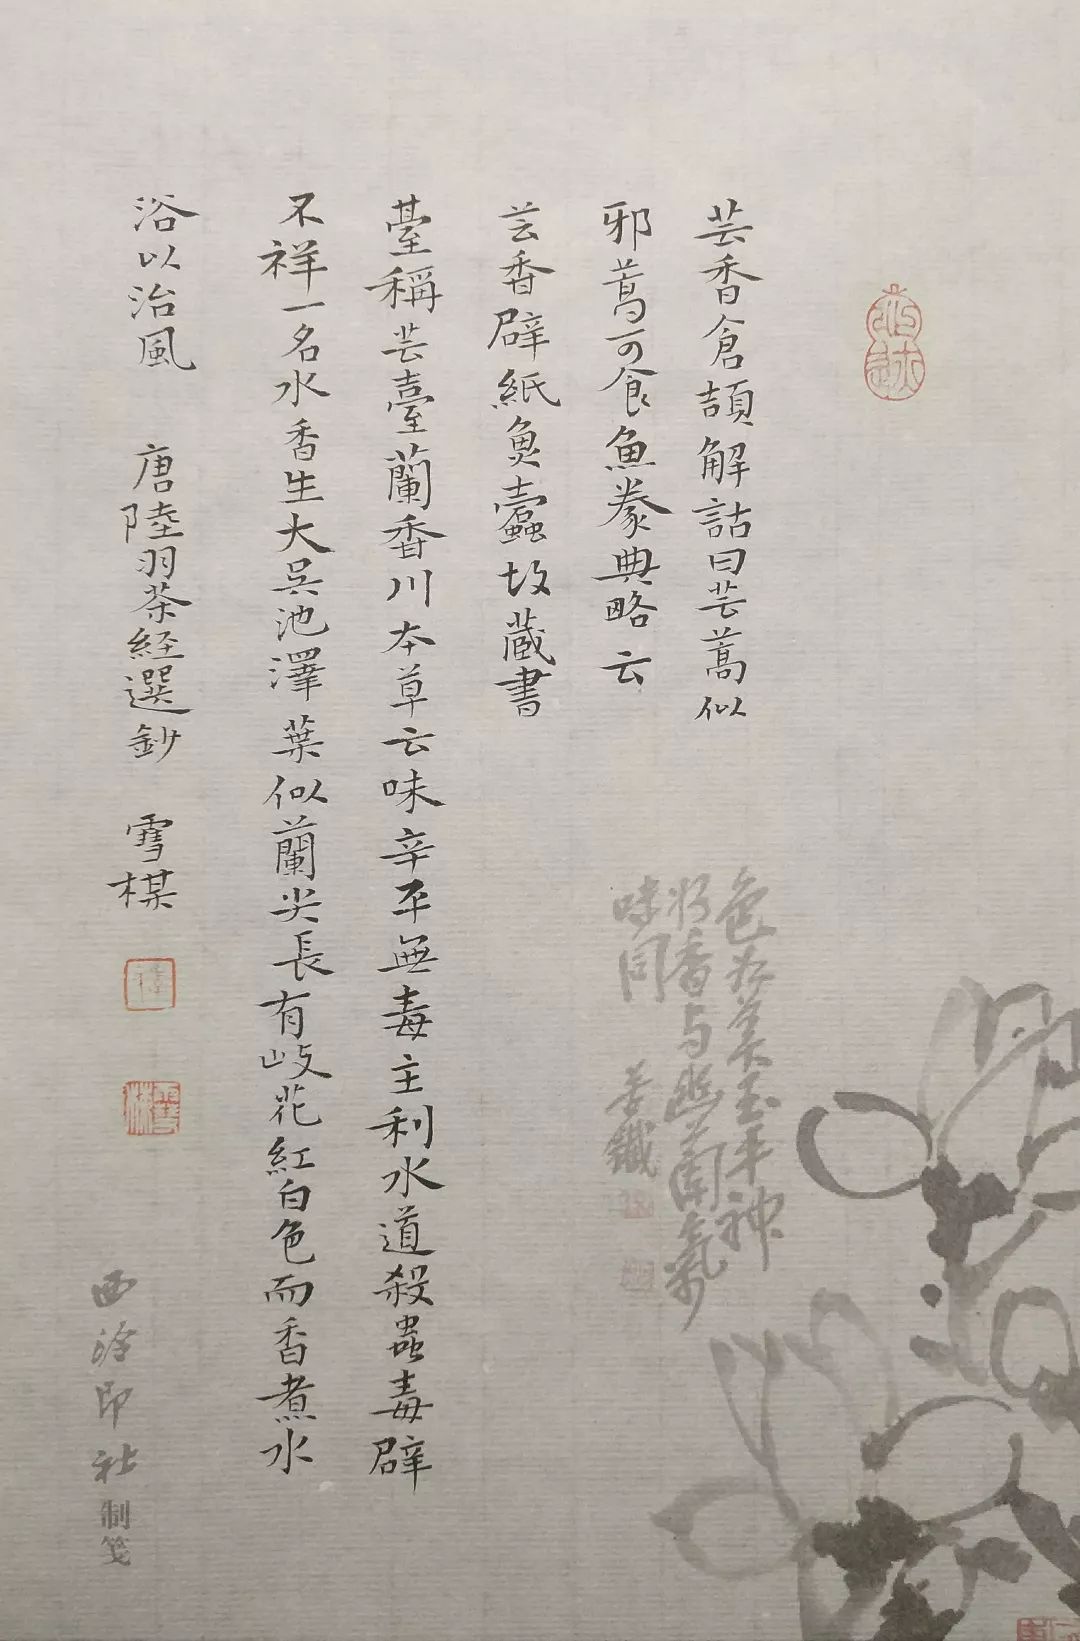 芸香倉頡解詁曰芸蒿似
邪蒿可食魚豢典略云
芸香辟紙魚蠹故蔵書
臺稱芸臺蘭香川本草云味辛平無毒主利水道殺蟲毒辟
不祥一名水香生大吴池澤葉似蘭尖長有岐花紅白色而香煮水
浴以治風 唐陸羽茶経選鈔 雪楳
色如美玉手神
将香与幽蘭氣
味同 苦鐵
西泠印社制笺